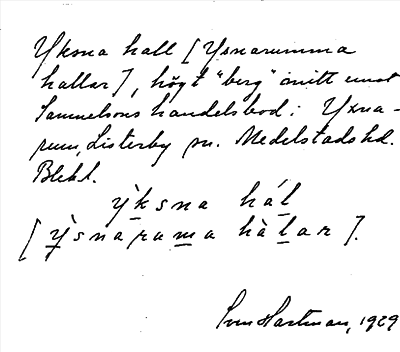 Yksna hall [Ysnarumma
hallar], högt "berg" mitt emot
Samuelsons handelsbod i Yxna-
rum, Listerby sn. Medelstads hd.
Blek l.
ỳksna hál
[ỳsnaruma hàlar].
Sven Hartman, 1929